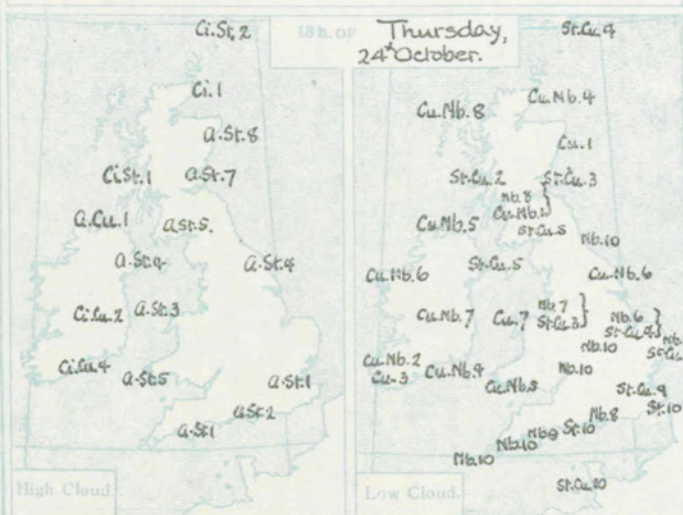 18h. OF Thursday,
24th October.
Ci.St.2
Ci.1
A.St.8
Ci.St.1 A.St.7
A.Cu.1 A.St.5.
A.St.4 A.St.4
Ci.Cu.2 A.St.3
Ci.Cu.4 A.St.5 A.St.1
A.St.2
A.St.1
High Cloud.
St.Cu.4
Cu.Nb.8 Cu.Nb.4
Cu.1
St.Cu.2 St.Cu.3
Nb.8
Cu.Nb.1
Cu.Nb.5 St.Cu.5
Nb.10
Cu.Nb.6 St.Cu.5 Cu.Nb.6
Cu.Nb.7 Cu.7 Nb.7
St.Cu.3
Nb.6
St.Cu.4
Nb.
St.Cu.
Nb.10
Cu.Nb.2
Cu.3 Cu.Nb.4 Nb.10
Cu.Nb.3 St.Cu.9
St.10
Nb.8
St.10
Nb.9
Nb.10
Nb.10
St.Cu.10
Low Cloud.